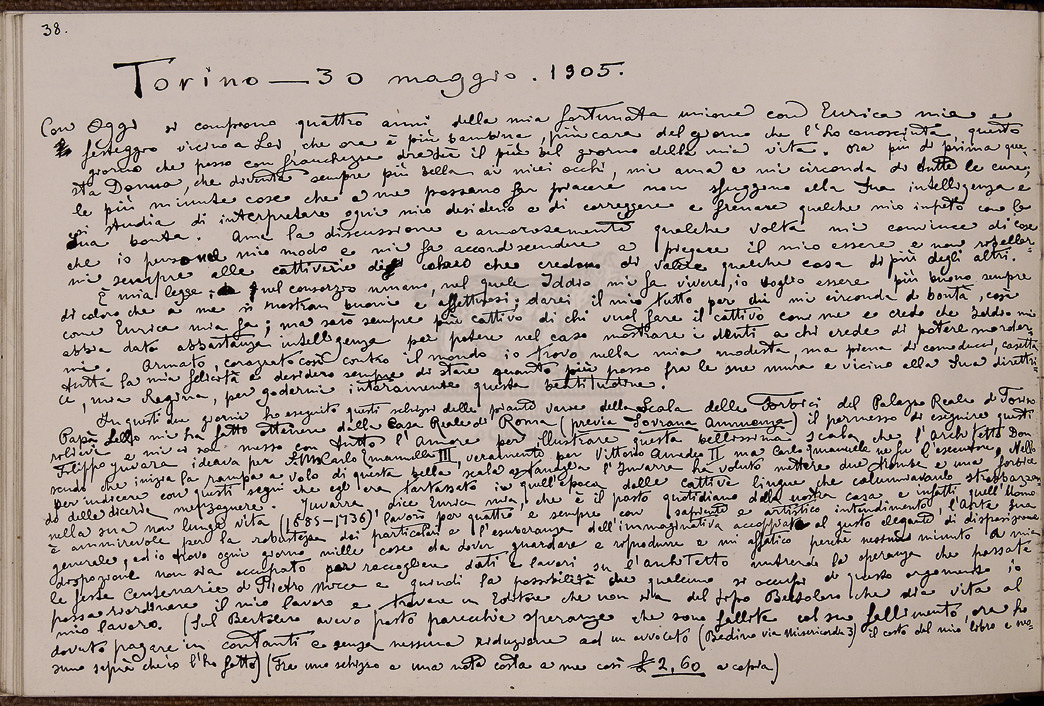 38.
Torino — 30 maggio. 1905.
Con Oggi si compiono quattro anni della mia fortunata unione con Enrica mia e
festeggio vicino a Lei, che ora è più bambina, più cara del giorno che l'ho conosciuta, questo
giorno che posso con franchezza dire il più bel giorno della mia vita. Ora più di prima que-
sta Donna, che diventa sempre più bella ai miei occhi, mi ama e mi circonda di tutte le cure;
le più minute cose che a me possano far piacere non sfuggono alla Sua intelligenza e
si studia di interpretare ogni mio desiderio e di correggere e frenare qualche mio impeto con la
Sua bontà. Ama la discussione e amorosamente qualche volta mi convince di cose
che io penso nel mio modo e mi fa accondiscendere a piegare il mio essere e non ribellar-
mi sempre alle cattiverie di coloro che credono di valere qualche cosa di più degli altri.
È mia legge: nel consorzio umano, nel quale Iddio mi fa vivere, io voglio essere più buono sempre
di coloro che a me si mostran buoni e affettuosi; darei il mio tutto per chi mi circonda di bontà, così
come Enrica mia fa; ma sarò sempre più cattivo di chi vuol fare il cattivo con me e credo che Iddio mi
abbia dato abbastanza intelligenza per potere nel caso mostrare i denti a chi crede di potere morder-
mi. Armato, corazzato così contro il mondo io trovo nella mia modesta, ma piena di comoducci, casetta
tutta la mia felicità e desidero sempre di stare quanto più posso fra le sue mura e vicino alla Sua direttri-
ce, mia Regina, per godermi interamente questa beatitudine.
In questi due giorni ho eseguito questi schizzi delle piante varie della Scala delle Forbici del Palazzo Reale di Torino
Papà Lello mi ha fatto ottenere dalla Casa Reale di Roma (previa Sovrana Annuenza) il permesso di eseguire questi
rilievi e mi ci son messo con tutto l'Amore per illustrare questa bellissima scala che l'Architetto Don
Filippo Juvara ideava per S.M. Carlo Emanuele III, veramente per Vittorio Amedeo II ma Carlo Emanuele ne fu l'esecutore. Nello
scudo che inizia la rampa a volo di questa bella scala a tanaglia l'Juvarra ha voluto mettere due chiuse e una forbice
per indicare con questi segni che egli era tartassato in quell'Epoca dalle cattive lingue che calunniavano strabbarzan-
do delle dicerie menzognere. Juvarra dice Enrica mia, che è il pasto quotidiano della nostra casa e infatti quell'Uomo
nella sua non lunga vita (1685-1736) lavorò per quattro e sempre con sapiente e artistico intendimento; l'Arte sua
è ammirevole per la robustezza dei particolari e l'esuberanza dell'immaginativa accoppiata al gusto elegante di disposizione
generale, ed io trovo ogni giorno mille cose da dover guardare e riprodurre e mi affatico perché nessun minuto di mia
disposizione non sia occupato per raccogliere dati e lavori su l'Architetto nutrendo la speranza che passate
le feste Centenarie di Pietro Micca e quindi la possibilità che qualcuno si occupi di questo argomento io
possa riordinare il mio lavoro e trovare un Editore che non sia del tipo Bertolero che dia vita al
mio lavoro. (Sul Bertolero avevo posto parecchie speranze che sono fallite col suo fallimento, ora ho
dovuto pagare in contanti e senza nessuna riduzione ad un avvocato (Bedino via Misericordia 3) il costo del mio libro e nes-
suno saprà che io l'ho fatto) (Fra uno schizzo e una nota costa a me così £ 2,60 a copia)